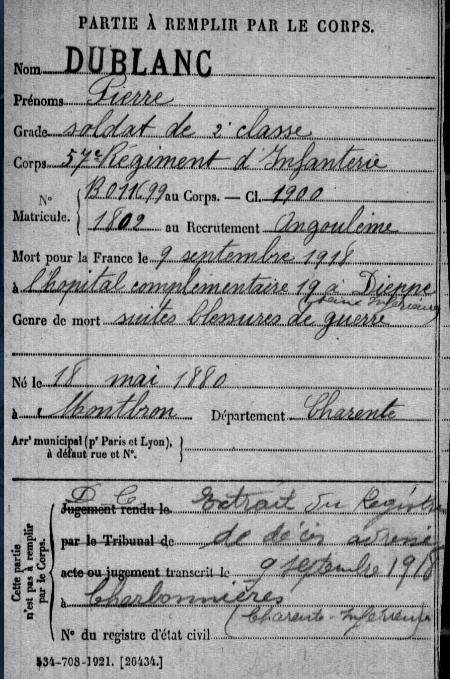 PARTIE À REMPLIR PAR LE CORPS.
Nom DUBLANC
Prénoms Pierre
Grade soldat de 2e classe
Corps 57e Régiment d'Infanterie
N° Matricule. { B011699 au Corps. — Cl. 1900
1802 au Recrutement Angoulême
Mort pour la France le 9 septembre 1918
à l'hopital complementaire 19 à Dieppe
Seine Inférieure
Genre de mort suites blessures de guerre
Né le 18 mai 1880
à Montbron Département Charente
Arrt municipal (pr Paris et Lyon), à défaut rue et N°.
Cette partie n'est pas à remplir par le Corps.
D C Extrait du Registre
Jugement rendu le
par le Tribunal de de décès adressé
acte ou jugement transcrit le 9 septembre 1918
à Charbonnières
(Charente-Inférieure)
N° du registre d'état civil
534-708-1921. [26434.]